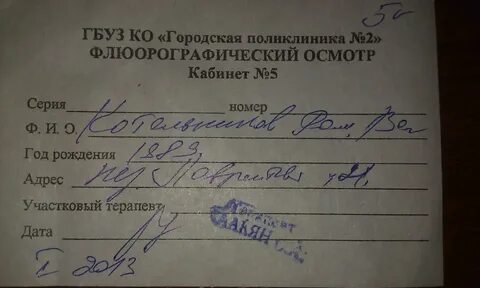 5г
ГБУЗ КО «Городская поликлиника №2»
ФЛЮОРОГРАФИЧЕСКИЙ ОСМОТР
Кабинет №5
Серия номер
Ф. И. О. Котельников Ром. Вяч
Год рождения 1989
Адрес пер
Участковый терапевт
Дата
I 2013